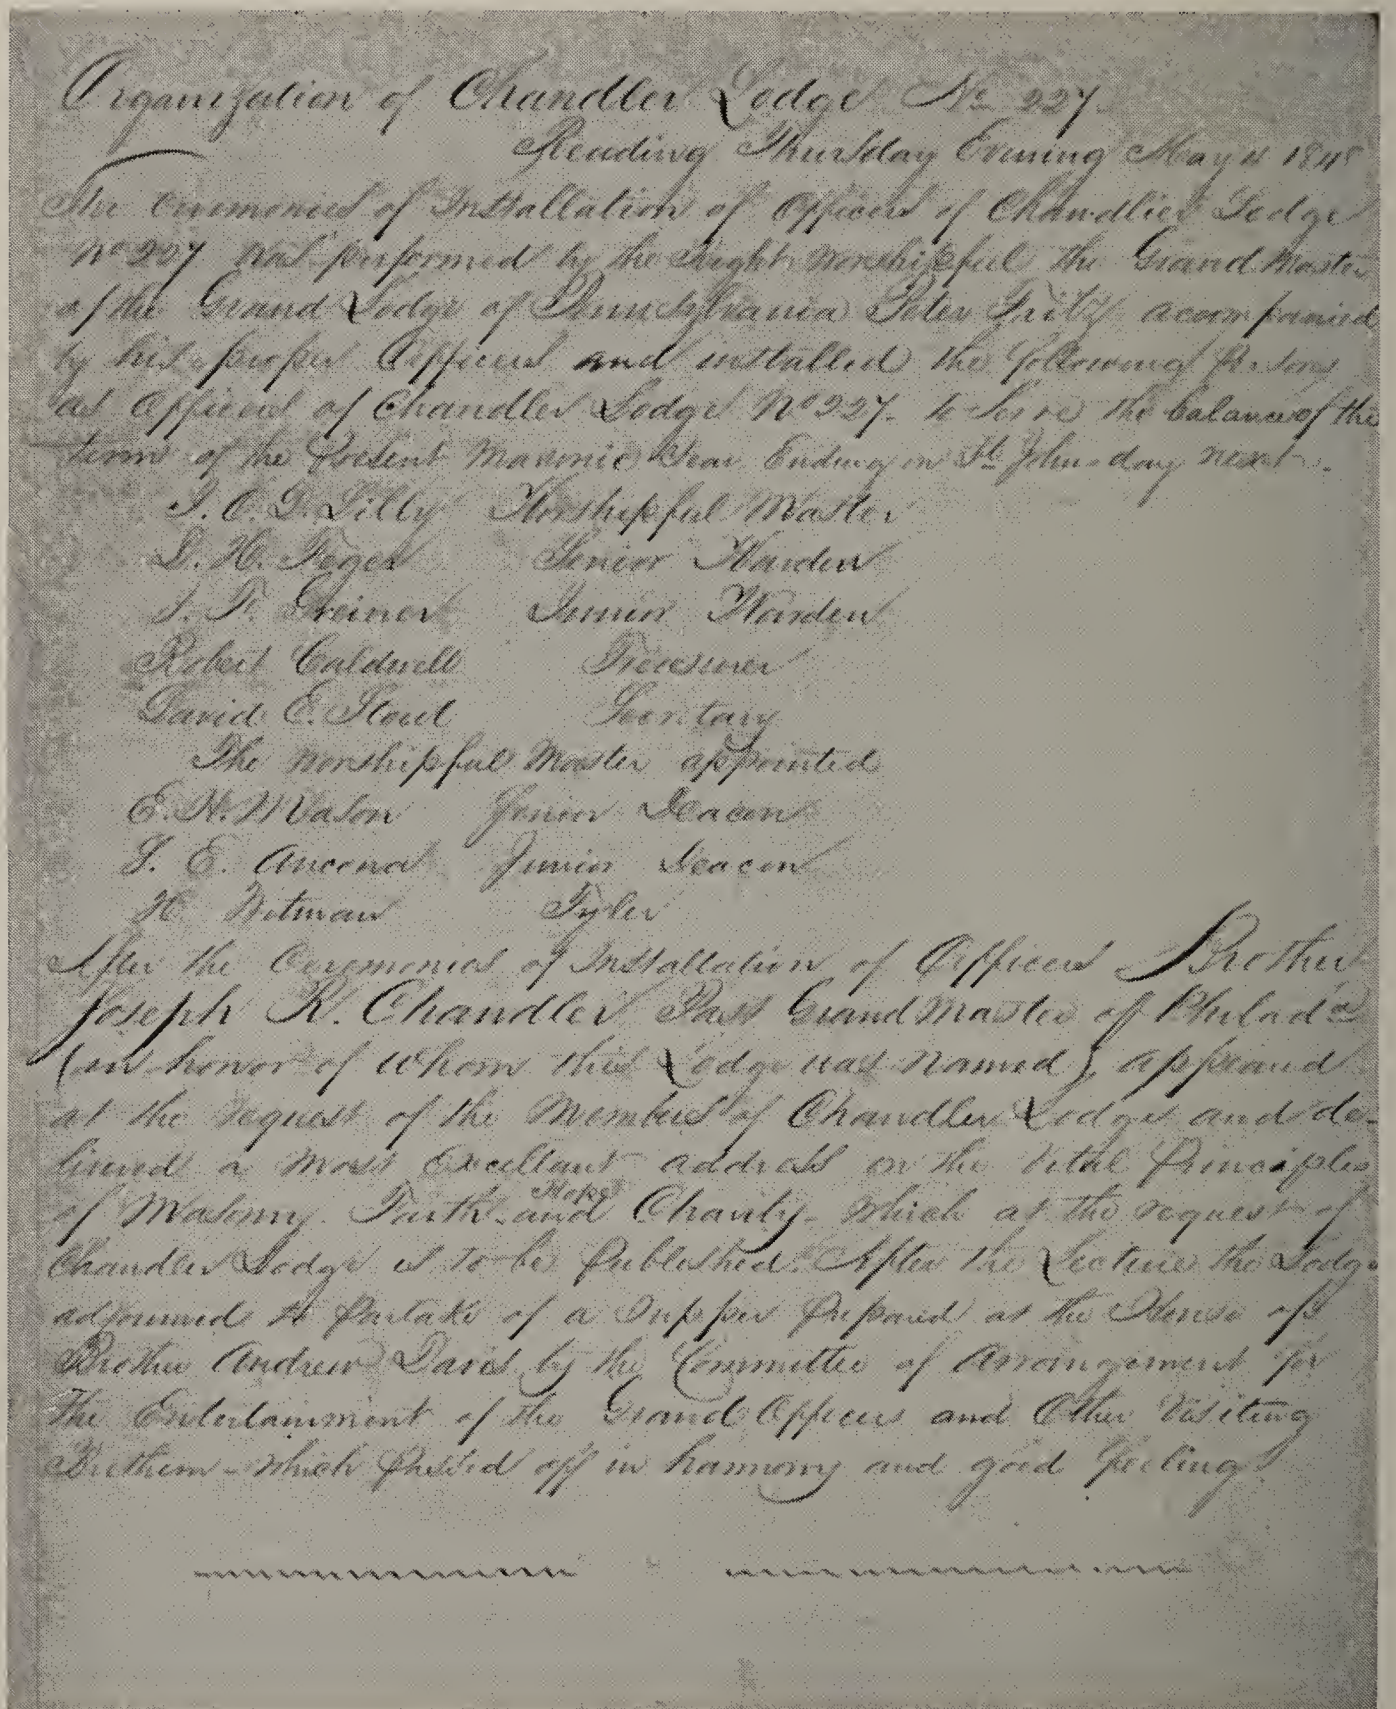 Organization of Chandler Lodge No 227
Reading Thursday Evening May 4 1848
The Ceremonies of Installation of Officers of Chandler Lodge
No 227 was performed by the Right Worshipful the Grand Master
of the Grand Lodge of Pennsylvania Peter Fritz acoompanied
by his proper Officers and installed the following Persons
as Officers of Chandler Lodge No 227. to Serve the balance of the
term of the Present Masonic Year Ending on St John-day next.
Lilly Worshipful Master
Feger Senior Warden
Greiner Junior Warden
Robert Caldwell Treasurer
David E. Stout Secretary
The worshipful Master appointed
E. H. Mason Senior Deacon
S. E. Ancona Junior Deacon
H Witman Tyler
After the Ceremonies of Installation of Officers Brother
Joseph R. Chandler Past Grand Master of Philada
(in honor of whom this Lodge was named), appeared
at the request of the Members of Chandler Lodge and de-
livered a most Excellant address on the Vital Principles
of Masonry. Faith Hope and Charity- which at the request of
Chandler Lodge is to be Published. After the Lecture the Lodge
adjourned to Partake of a Supper Prepared at the House of
Brother Andrew Davis by the Committee of Arrangement for
the Entertainment of the Grand Officers and Other Visiting
Brethern - which Passed off in harmony and good feeling.